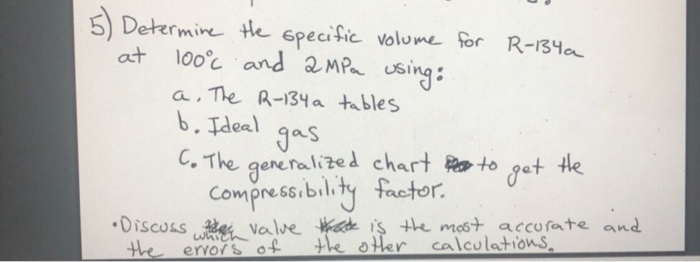 5) Determine the specific volume for R-134a
at 100°C and 2 MPa using:
a. The R-134a tables
b. Ideal gas
C. The generalized chart to get the
compressibility factor.
•Discuss which value is the most accurate and
the errors of the other calculations.